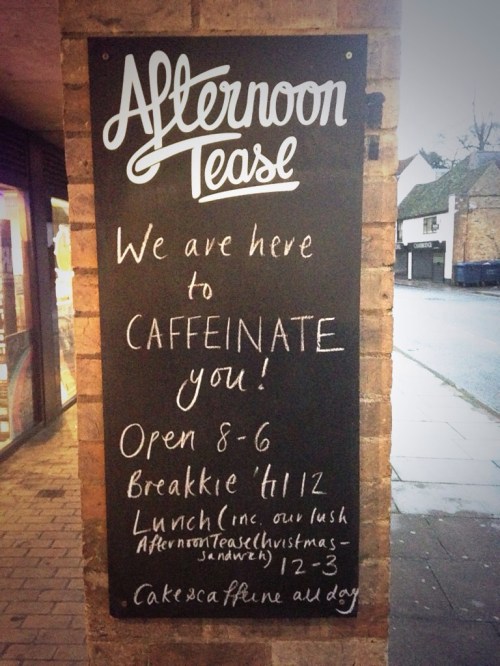 Afternoon
Tease
We are here
to
CAFFEINATE
you!
Open 8-6
Breakkie 'til 12
Lunch (inc. our lush
Afternoon Tease Christmas-
sandwich)
12-3
Cake & caffeine all day